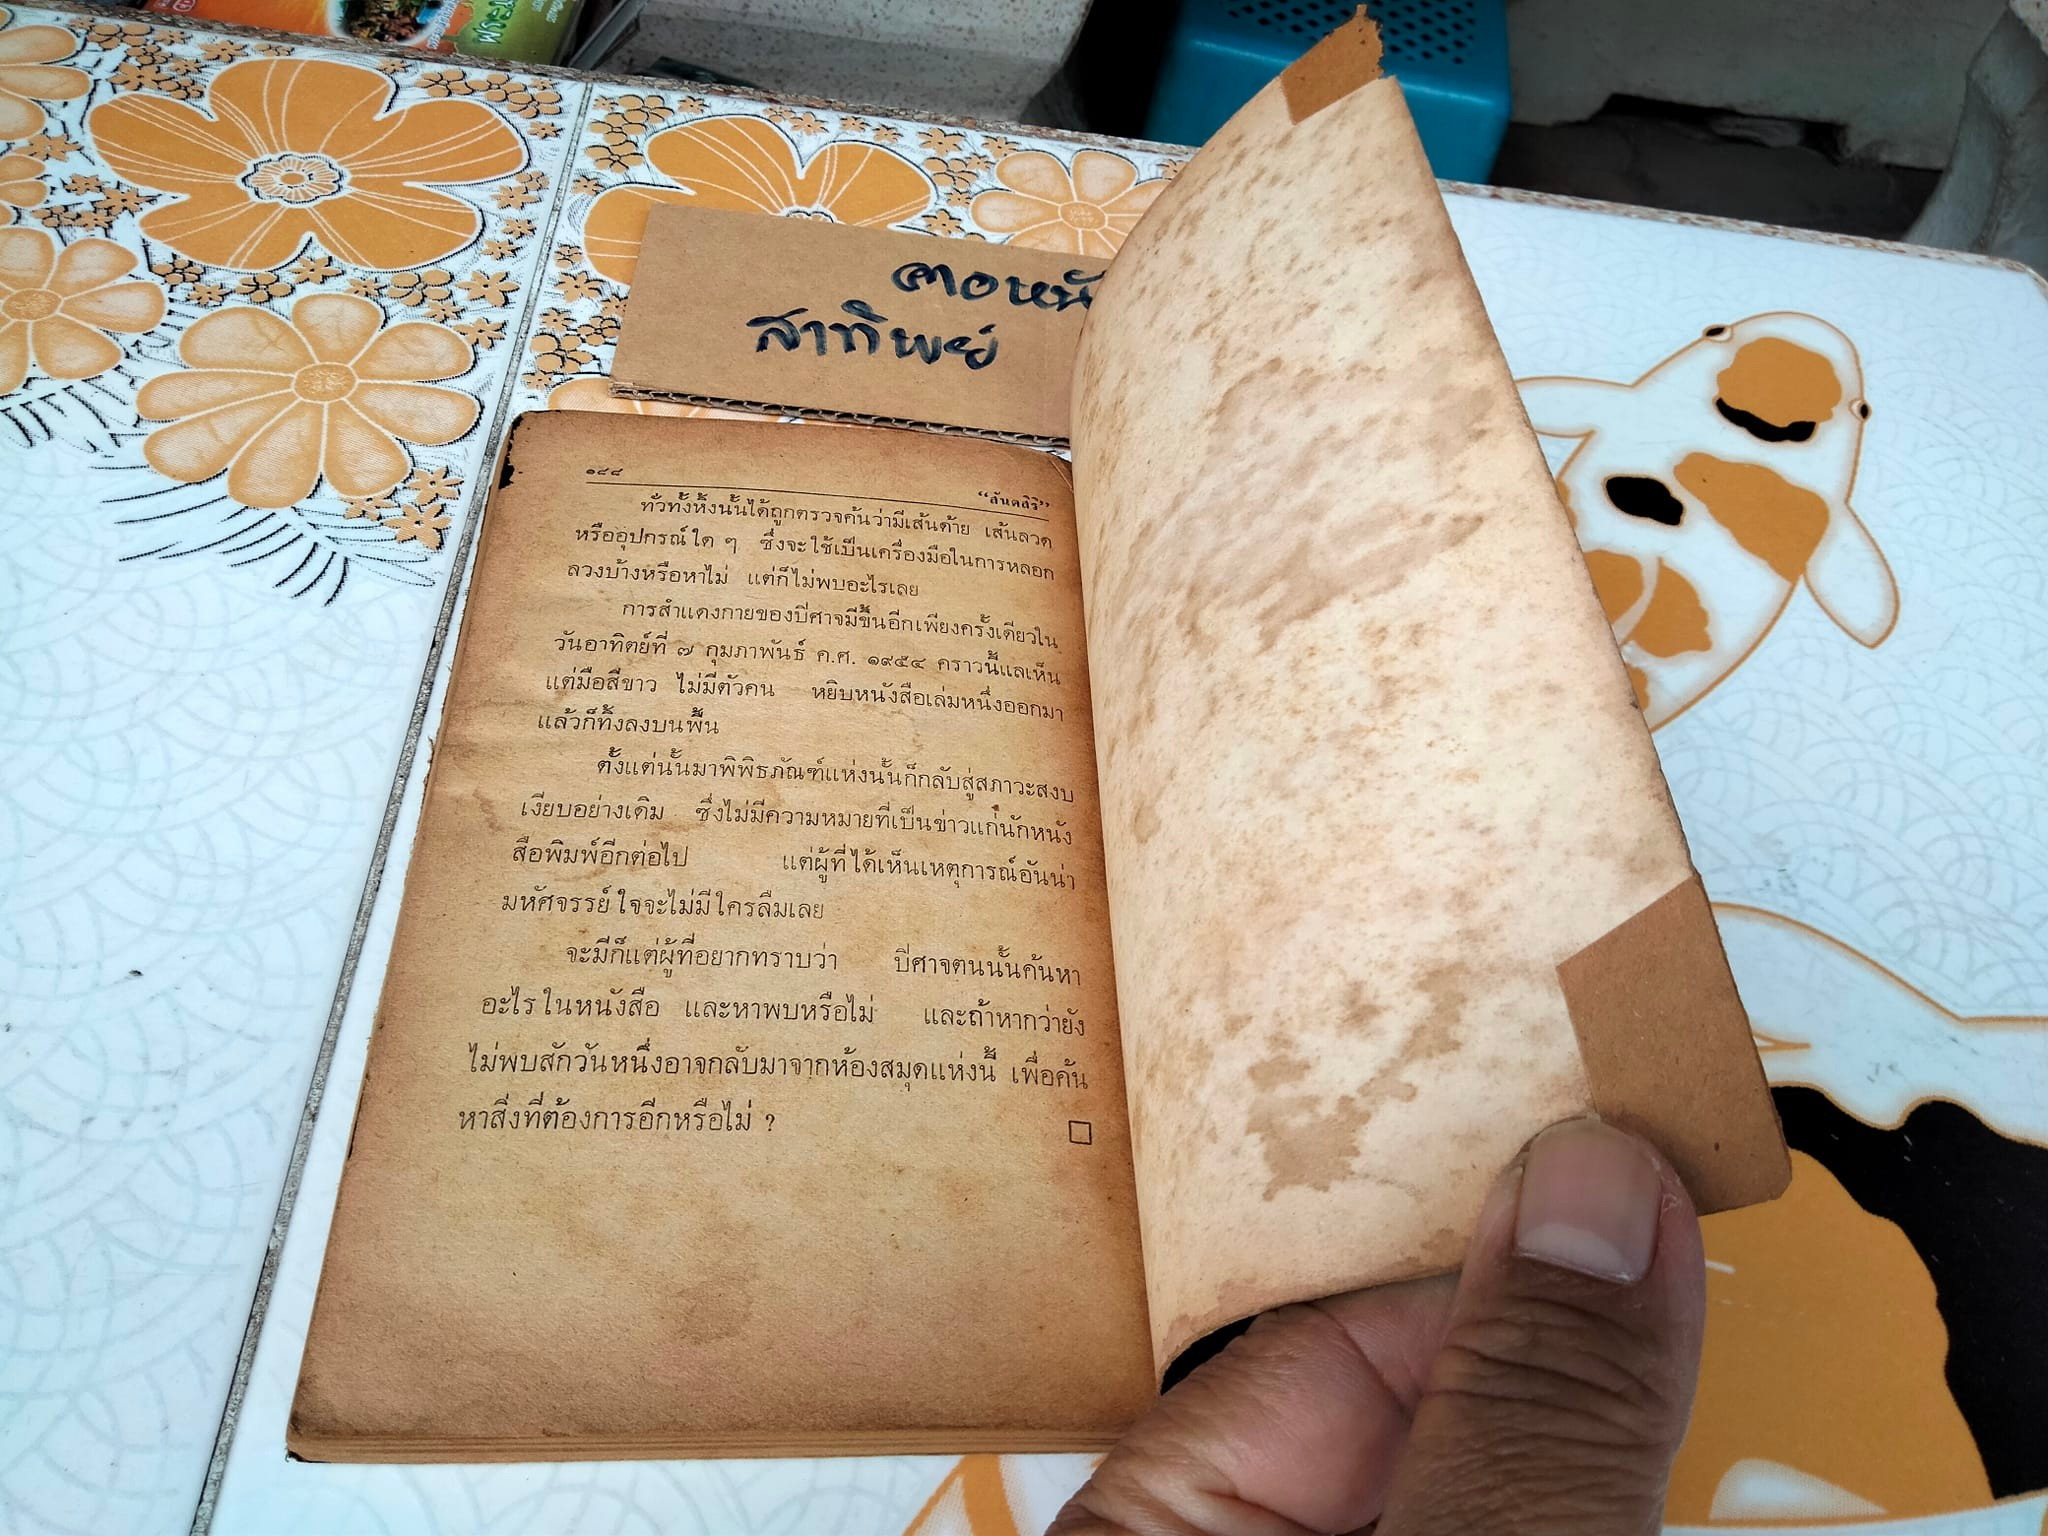 คอหนั
สาทิพย์
๑๘๘
“สันตสิริ”
ทั่วทั้งหิ้งนั้นได้ถูกตรวจค้นว่ามีเส้นด้าย เส้นลวด
หรืออุปกรณ์ใด ๆ ซึ่งจะใช้เป็นเครื่องมือในการหลอก
ลวงบ้างหรือหาไม่ แต่ก็ไม่พบอะไรเลย
การสำแดงกายของปีศาจมีขึ้นอีกเพียงครั้งเดียวใน
วันอาทิตย์ที่ ๗ กุมภาพันธ์ ค.ศ. ๑๙๕๔ คราวนี้แลเห็น
แต่มือสีขาว ไม่มีตัวคน หยิบหนังสือเล่มหนึ่งออกมา
แล้วก็ทิ้งลงบนพื้น
ตั้งแต่นั้นมาพิพิธภัณฑ์แห่งนั้นก็กลับสู่สภาวะสงบ
เงียบอย่างเดิม ซึ่งไม่มีความหมายที่เป็นข่าวแก่นักหนัง
สือพิมพ์อีกต่อไป แต่ผู้ที่ได้เห็นเหตุการณ์อันน่า
มหัศจรรย์ใจจะไม่มีใครลืมเลย
จะมีก็แต่ผู้ที่อยากทราบว่า ปีศาจตนนั้นค้นหา
อะไรในหนังสือ และหาพบหรือไม่ และถ้าหากว่ายัง
ไม่พบสักวันหนึ่งอาจกลับมาจากห้องสมุดแห่งนี้ เพื่อค้น
หาสิ่งที่ต้องการอีกหรือไม่ ?